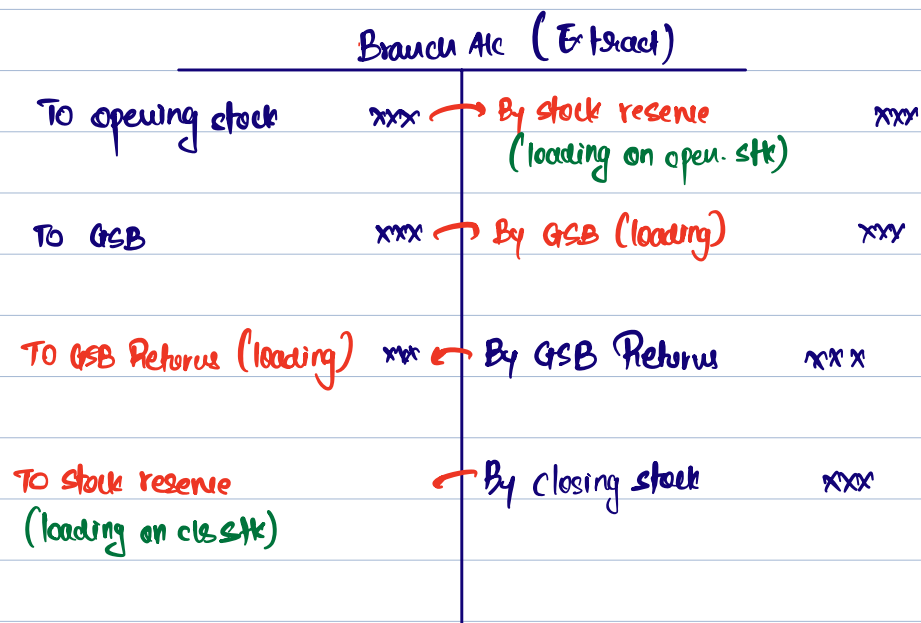 Branch A/c (Extract)
To opening stock xxx By stock reserve xxx
(loading on open. stk)
To GSB xxx By GSB (loading) xxx
To GSB Returns (loading) xxx By GSB Returns xxx
To stock reserve By closing stock xxx
(loading on cls stk)